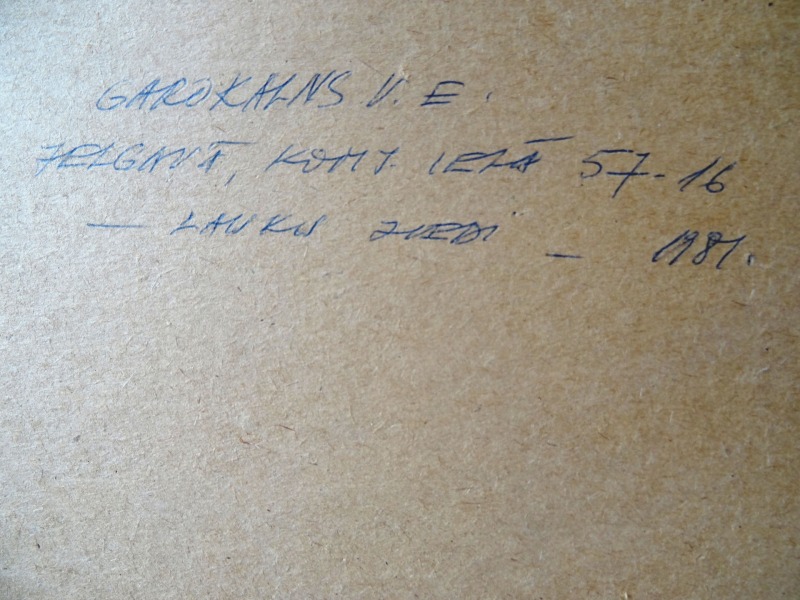 GAROKALNS V. E.
JELGAVĀ, KOMJ. IELĀ 57-16
— LAUKU ZIEDI — 1981.